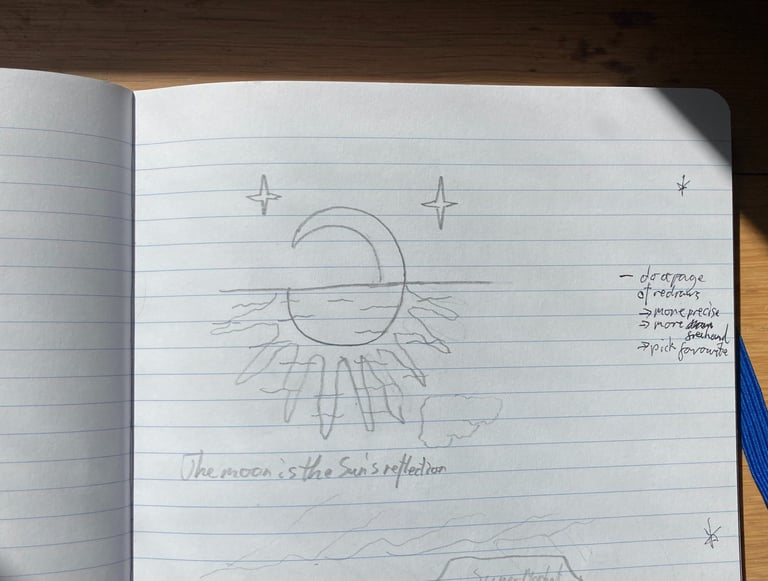 - do a page
of redraws
→ more precise
→ more
freehand
→ pick favourite
The moon is the Sun's reflection